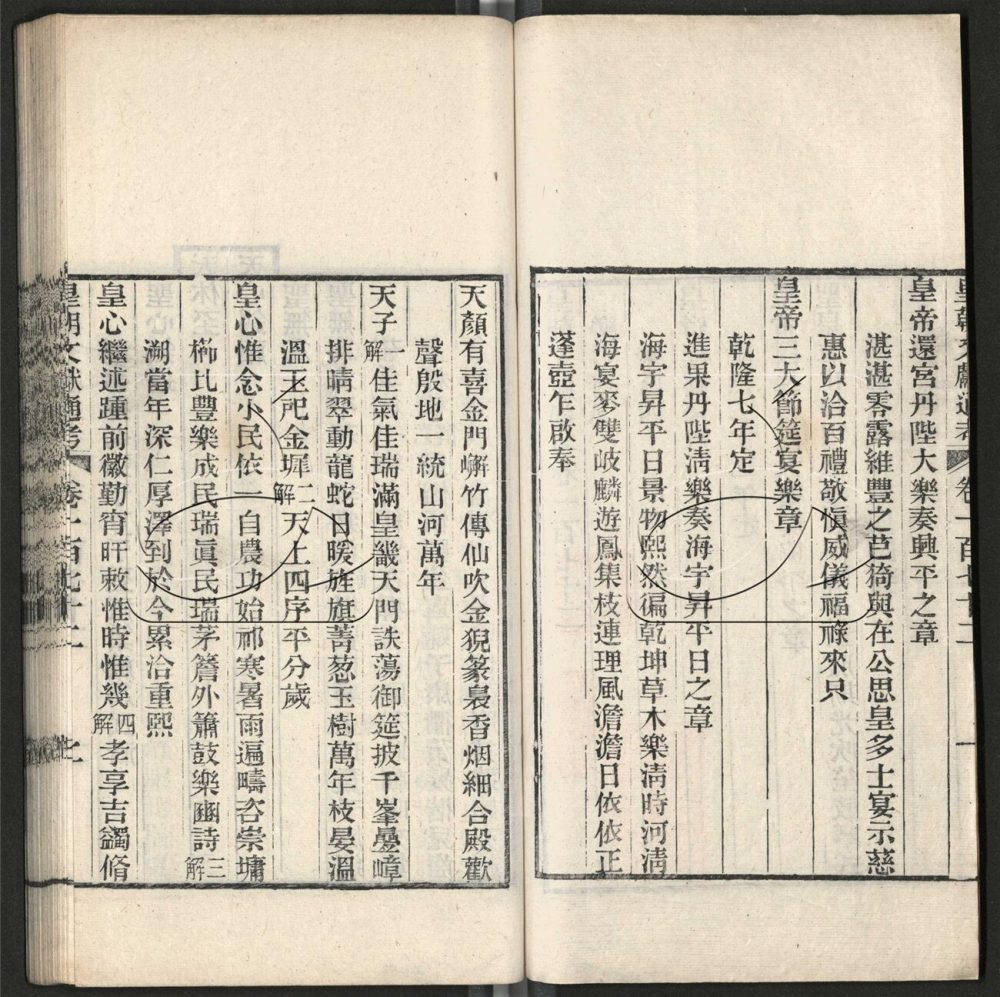 皇朝文獻通考 卷一百七十二 一
皇帝還宮丹陛大樂奏興平之章
湛湛零露維豐之芑猗與在公思皇多士宴示慈
惠以洽百禮敬愼威儀福祿來只
皇帝三大節筵宴樂章
乾隆七年定
進果丹陛淸樂奏海宇昇平日之章
海宇昇平日景物熙然徧乾坤草木樂淸時河淸
海宴麥雙岐麟遊鳳集枝連理風澹澹日依依正
蓬壺乍啟奉
天顏有喜金門嶰竹傳仙吹金猊篆裊香烟細合殿歡
聲殷地一統山河萬年
天子一解佳氣佳瑞滿皇畿天門詄蕩御筵披千峯疊嶂
排晴翠動龍蛇日暖旌旗菁葱玉樹萬年枝晏溫
溫玉戺金墀二解天上四序平分歲
皇心惟念小民依一自農功始祁寒暑雨遍疇咨崇墉
櫛比豐樂成民瑞眞民瑞茅簷外簫鼓樂豳詩三解
溯當年深仁厚澤到於今累洽重熙
皇心繼述踵前徽勤宵旰敕惟時惟幾四解孝享吉蠲脩
皇朝文獻通考 卷一百七十二